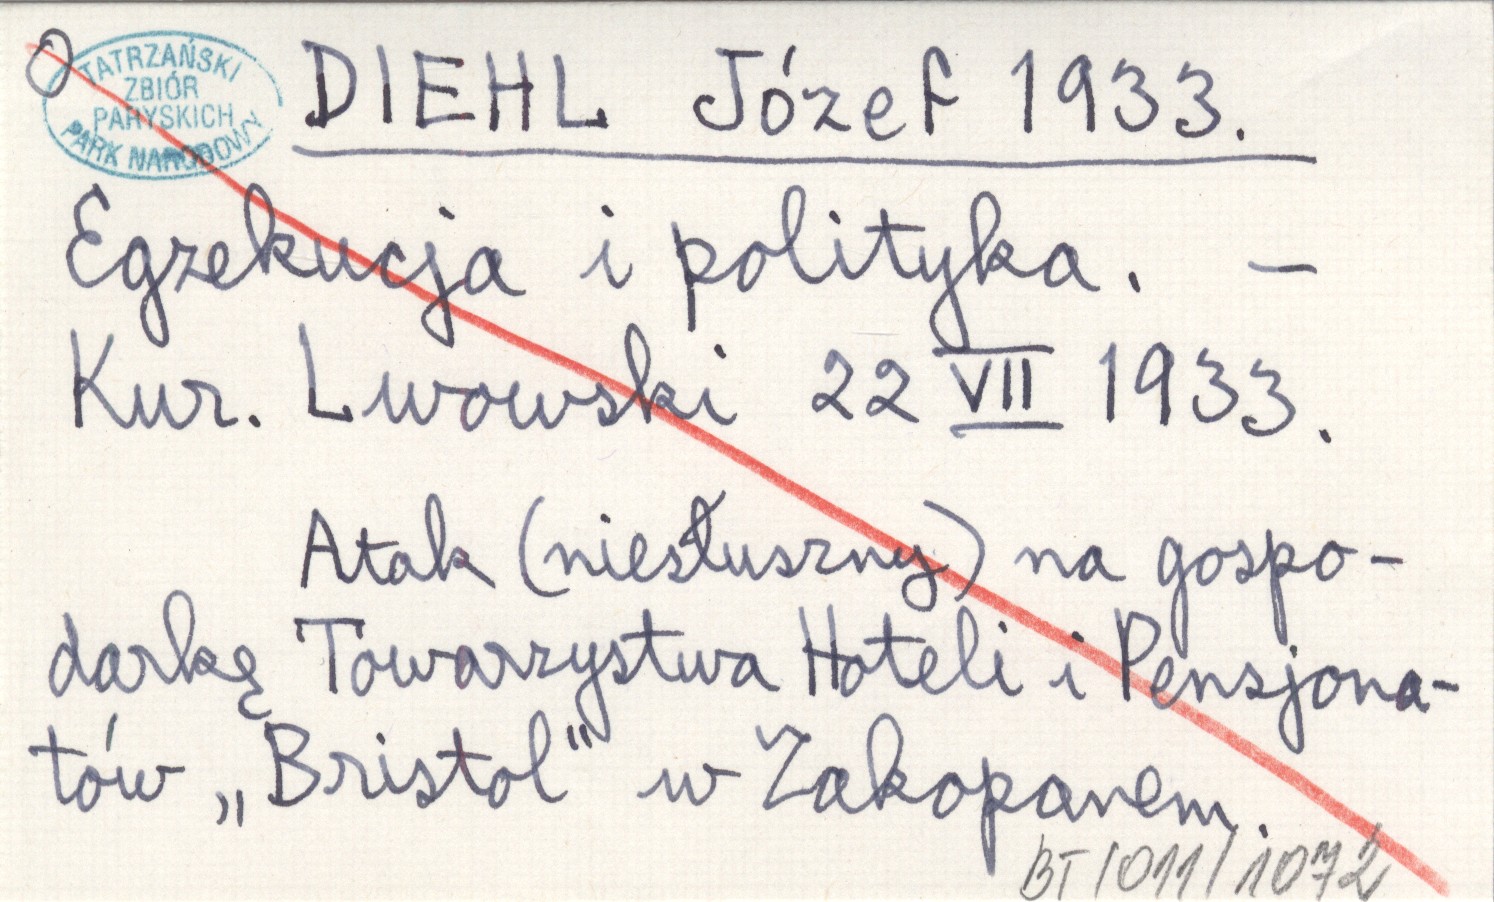 TATRZAŃSKI
ZBIÓR
PARYSKICH
PARK NARODOWY
DIEHL Józef 1933.
Egzekucja i polityka. —
Kur. Lwowski 22 VII 1933.
Atak (niesłuszny) na gospo-
darkę Towarzystwa Hoteli i Pensjona-
tów „Bristol" w Zakopanem.
BT/011/1072